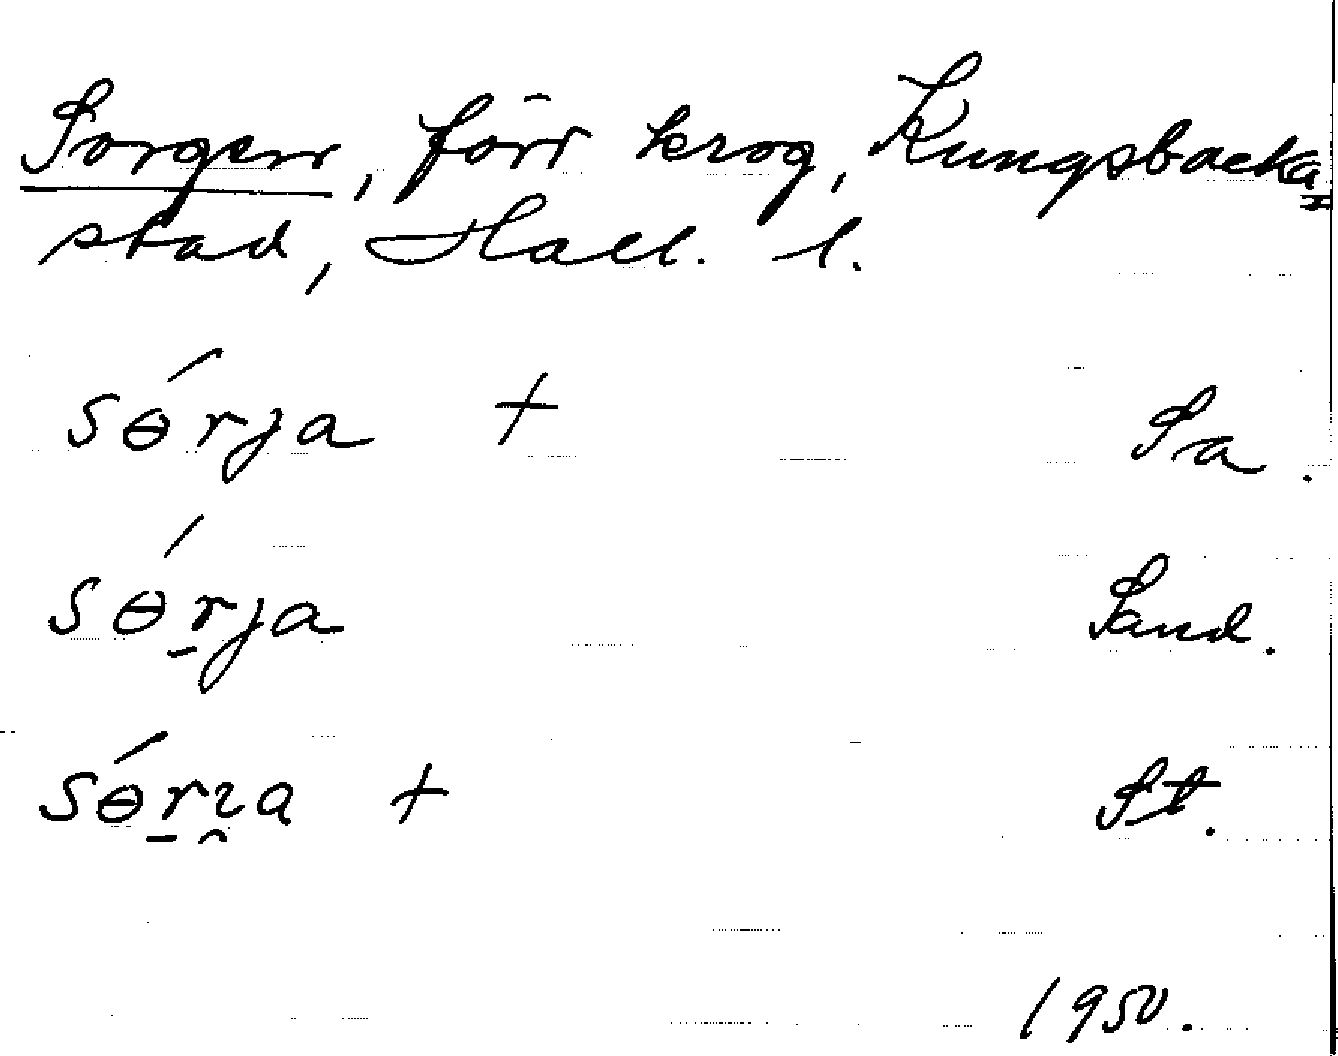 Sorgen, förr krog, Kungsbacka
stad, Hall. l.
sɵ́rja + Sa.
sɵ́r̠ja Sand.
sɵ́r̠ı̯a + St.
1950.